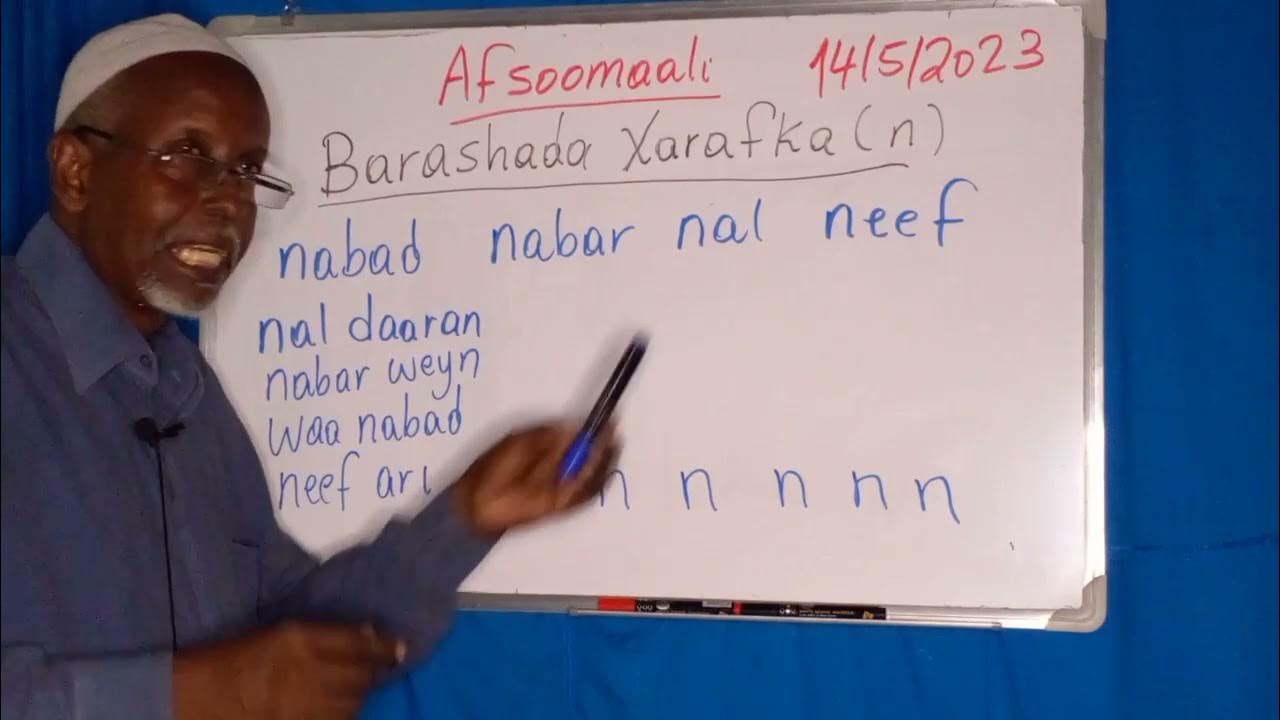 Afsoomaali 14/5/2023
Barashada Xarafka (n)
nabad nabar nal neef
nal daaran
nabar weyn
waa nabad
neef ari n n n n n